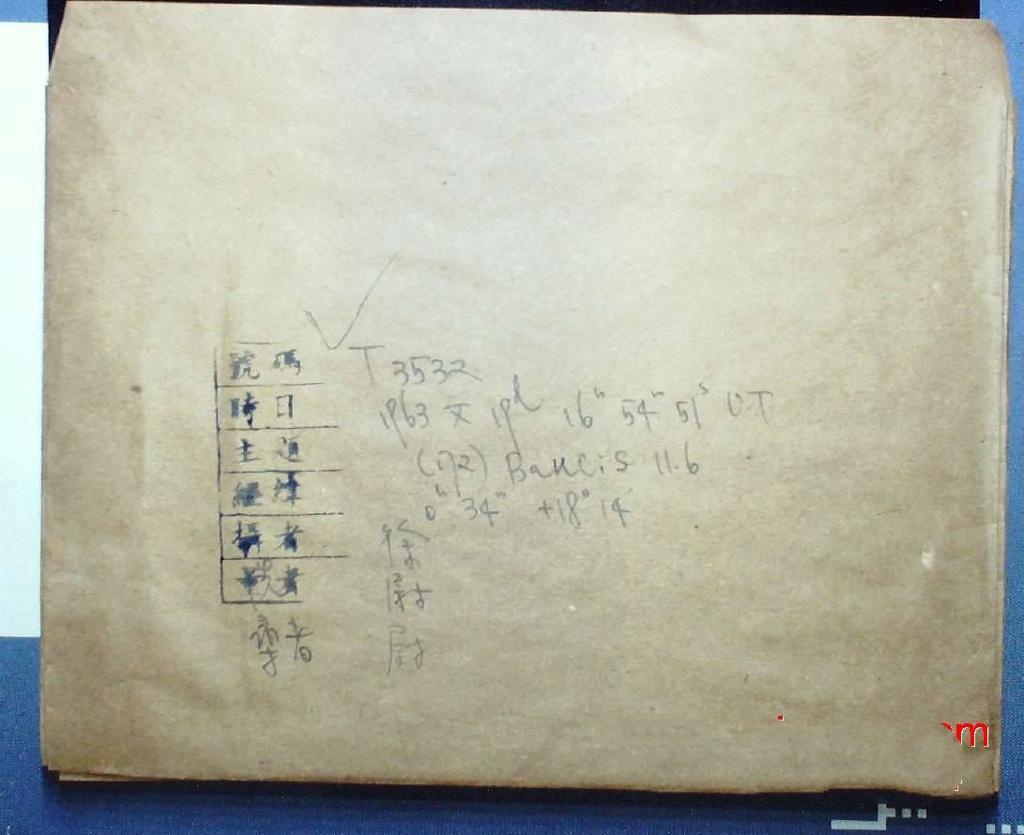 號碼 T 3532
時日 1963 X 19d 16h 54m 51s U.T
主題 (172) Baucis 11.6
經緯 0h 34m +18° 14'
攝者 徐
者 尉
者 尉
om